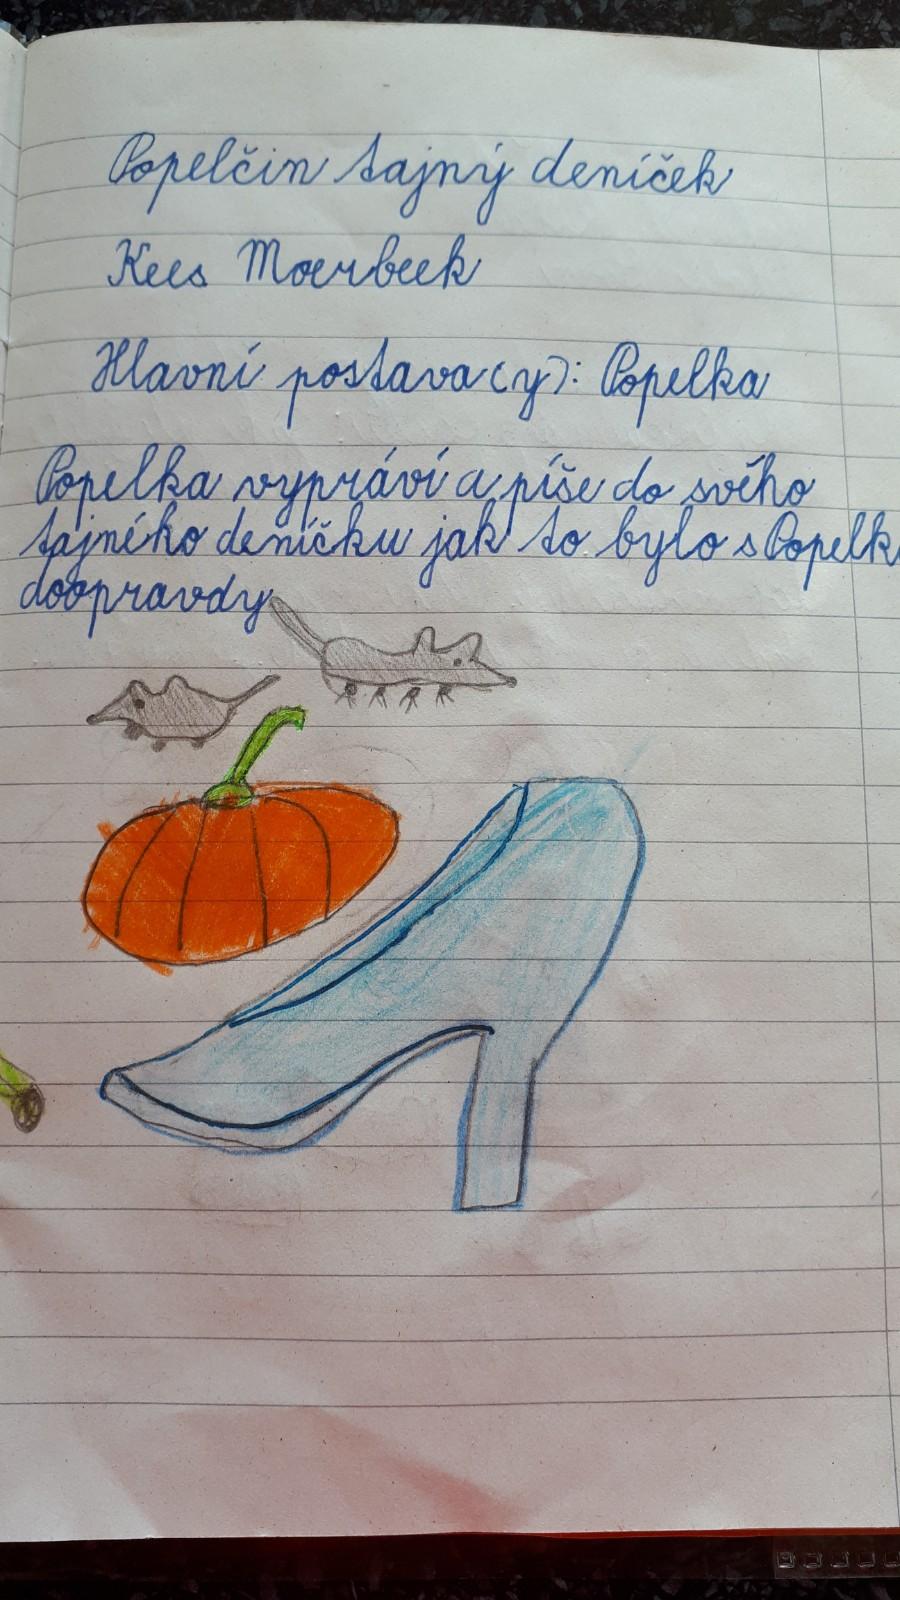 Popelčin tajný deníček
Kees Moerbeek
Hlavní postava(y): Popelka
Popelka vypráví a píše do svého
tajného deníčku jak to bylo s Popelk
doopravdy